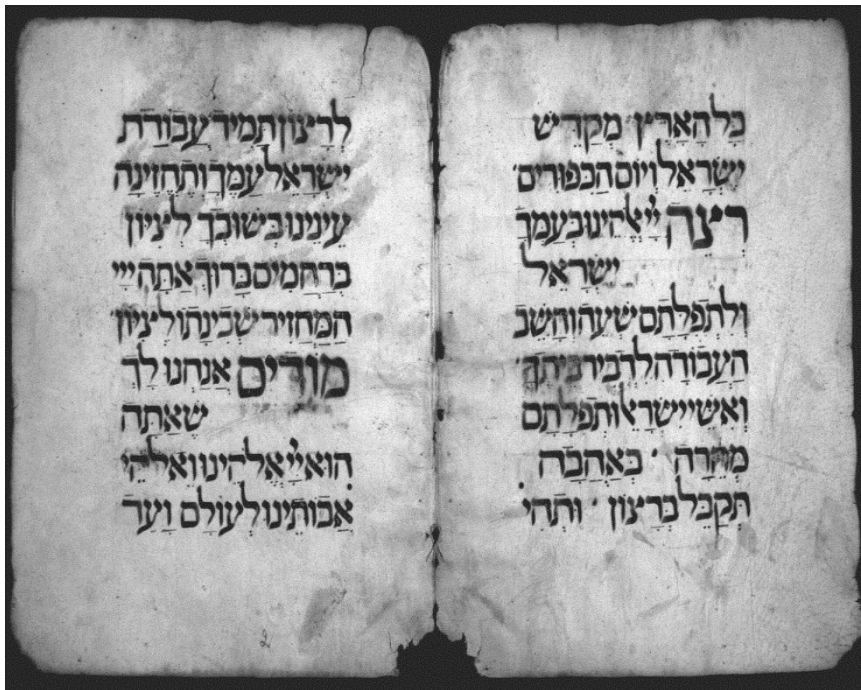 כל הארץ מקדיש
ישראל ויום הכפורים
רצה יי אלהינו בעמך
ישראל
ולתפלתם שעה והשב
העבודה לדביר ביתך
ואשי ישראל ותפלתם
מהרה · באהבה
תקבל ברצון · ותהי
לרצון תמיד עבודת
ישראל עמך ותחזינה
עינינו בשובך לציון
ברחמים ברוך אתה ייי
המחזיר שכינתו לציון
מודים אנחנו לך
שאתה
הוא יי אלהינו ואלהי
אבותינו לעולם ועד